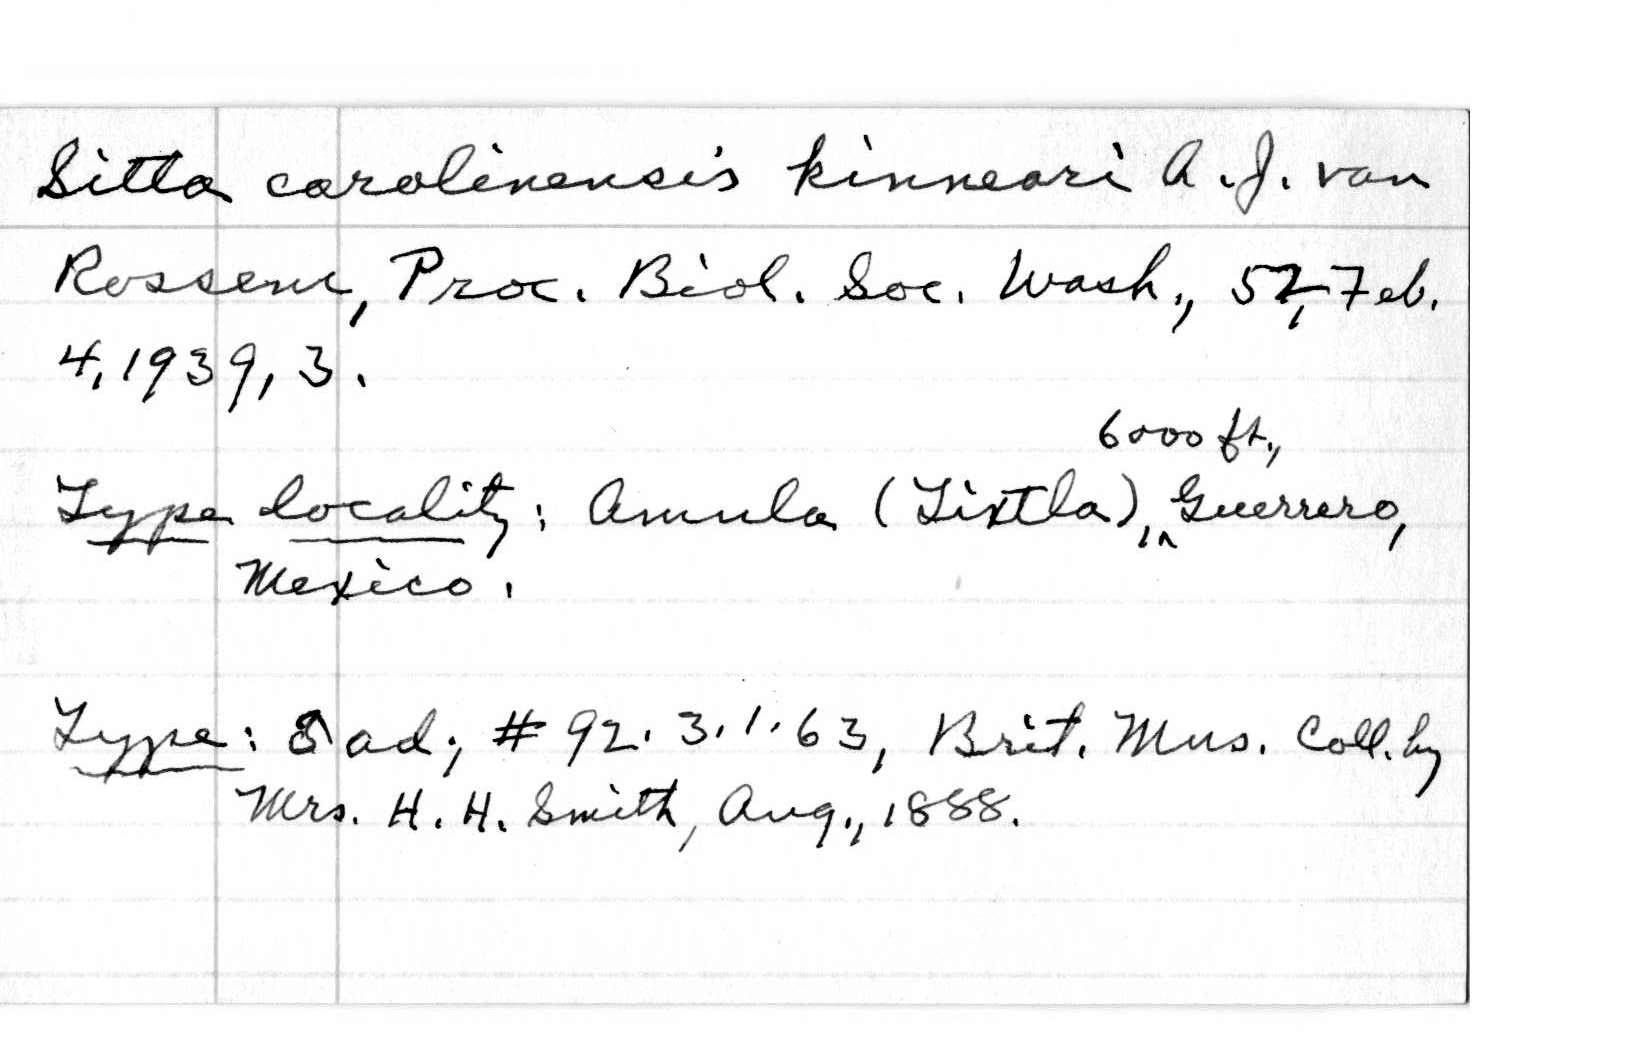 Sitta carolinensis kinneari A.J. van
Rossem, Proc. Biol. Soc. Wash., 52, Feb.
4, 1939, 3.
6000 ft.,
Type locality: Amula (Tixtla), Guerrero,
Mexico.
Type: ad; # 92.3.1.63, Brit. Mus. Coll. by
Mrs. H. H. Smith, Aug., 1888.